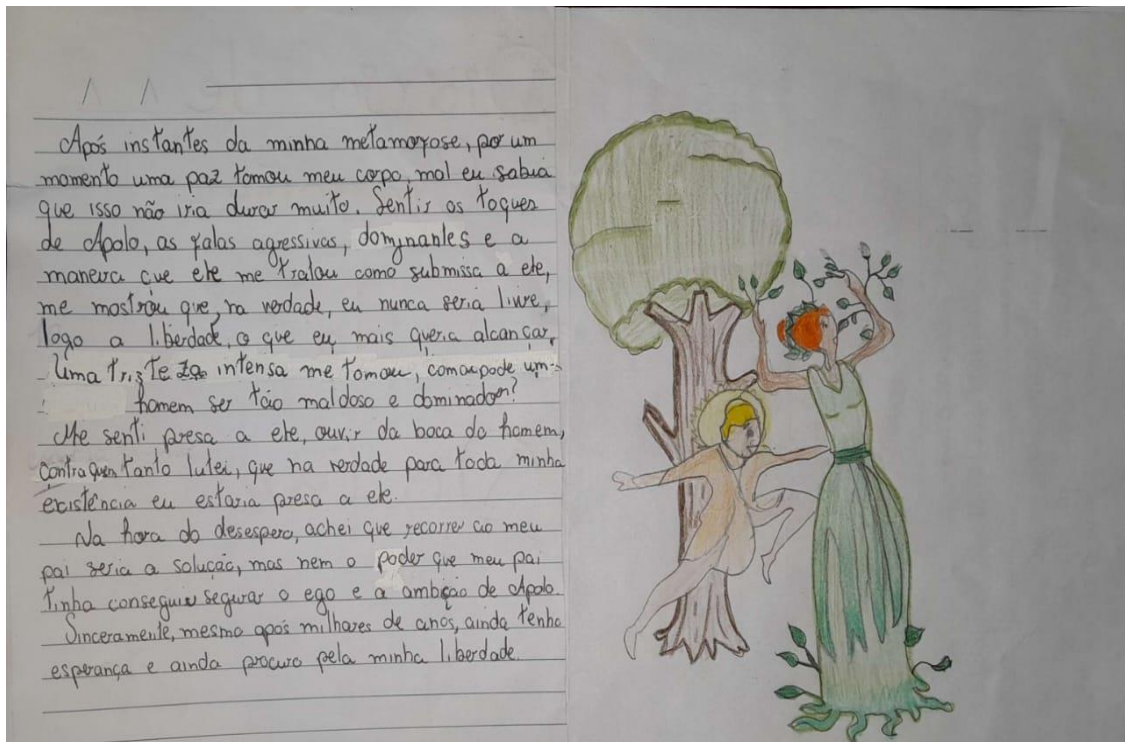 Após instantes da minha metamorfose, por um
momento uma paz tomou meu corpo, mal eu sabia
que isso não iria durar muito. Sentir os toques
de Apolo, as falas agressivas, dominantes e a
maneira que ele me tratou como submissa a ele,
me mostrou que, na verdade, eu nunca seria livre,
logo a liberdade, o que eu mais queria alcançar.
Uma tristeza intensa me tomou, como pode um
homem ser tão maldoso e dominador?
Me senti presa a ele, ouvir da boca do homem,
contra quem tanto lutei, que na verdade para toda minha
existência eu estaria presa a ele.
Na hora do desespero, achei que recorrer ao meu
pai seria a solução, mas nem o poder que meu pai
tinha conseguiu segurar o ego e a ambição de Apolo.
Sinceramente, mesmo após milhares de anos, ainda tenho
esperança e ainda procuro pela minha liberdade.